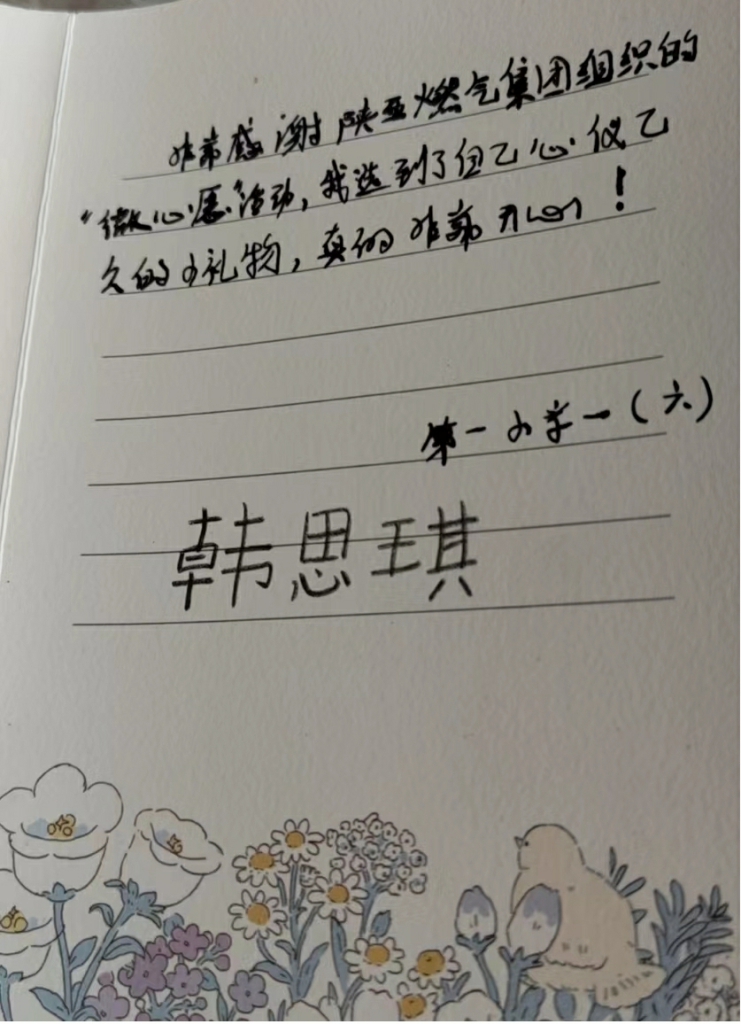 非常感谢陕西燃气集团组织的
“微心愿”活动，我选到了自己心仪已
久的小礼物，真的非常开心！
第一小学一（六）
韩思琪